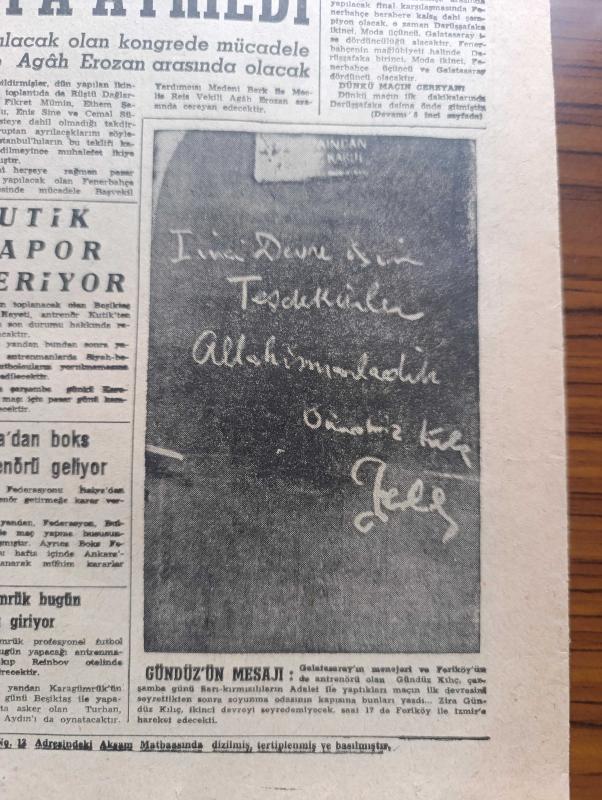 YA AYRILDI
ılacak olan kongrede mücadele
Agâh Erozan arasında olacak
bildirmişler, dün yapılan ikin-
toplantıda da Rüştü Dağlar-
Fikret Mümin, Ethem
Enis Sine ve Cemal
dahil olmadığı takdir-
ruptan ayrılacaklarını söyle-
İstanbul'luların bu teklifi
dilmeyince muhalefet ikiye
herşeye rağmen pazar
yapılacak olan Fenerbahçe
esinde mücadele Başvekil
Yardımcısı Medeni Berk ile Mec-
lis Reis Vekili Agâh Erozan ara-
sında cereyan edecektir.
yapılacak final karşılaşmasında Fe-
nerbahçe berabere kalsa dahi şam-
piyon olacak, o zaman Darüşşafaka
ikinci, Moda üçüncü, Galatasaray
se dördüncülüğü alacaktır. Fener-
bahçenin mağlûbiyeti halinde Da-
rüşşafaka birinci, Moda ikinci, Fe-
nerbahçe üçüncü ve Galatasaray
dördüncü olacaktır.
DÜNKÜ MAÇIN CEREYANI
Dünkü maçın ilk dakikalarında
Darüşşafaka daima önde gitmiştir
(Devamı 5 inci sayfada)
UTİK
APOR
ERİYOR
toplanacak olan Beşiktaş
Heyeti, antrenör Kutik'ten
son durumu hakkında
caktır.
yandan bundan sonra
antrenmanlarda Siyah-be-
futbolcuların yorulmamasına
edilecektir.
çarşamba günkü
maçı için pazar günü
ecektir.
a'dan boks
enörü geliyor
Federasyonu İtalya'dan
nör getirmeğe karar ver-
yandan, Federasyon,
le maç yapma hususun-
mıştır. Ayrıca Boks Fe-
hafta içinde Ankara'-
anarak mühim kararlar
mrük bugün
giriyor
mrük profesyonel futbol
ugün yapacağı antrenma-
kıp Reinbov otelinde
irecektir.
yandan Karagümrük'ün
günü Beşiktaş ile yapa-
ta asker olan Turhan,
Aydın'ı da oynatacaktır.
İinci Devre için
Teşekkürler
Allahısmarladık
Gündüz Kılıç
GÜNDÜZ'ÜN MESAJI : Galatasaray'ın menejeri ve Feriköy'ün
de antrenörü olan Gündüz Kılıç, çar-
şamba günü Sarı-kırmızılıların Adalet ile yaptıkları maçın ilk devresini
seyrettikten sonra soyunma odasının kapısına bunları yazdı... Zira Gün-
düz Kılıç, ikinci devreyi seyredemiyecek, saat 17 de Feriköy ile İzmir'e
hareket edecekti.
No. 13 Adresindeki Akşam Matbaasında dizilmiş, tertiplenmiş ve basılmıştır.